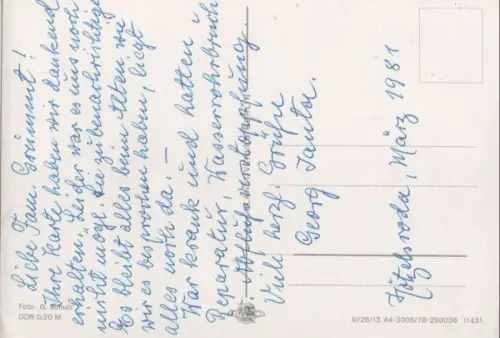 Liebe Fam. Grimmt!
Ihre Karte haben wir dankend
erhalten. Leider war es uns noch
nicht mögl. Sie zu benachrichtigen
Es bleibt alles beim Alten wie
wir es besprochen haben, liegt
alles noch da. —
War krank und hatten
Reparatur, Wasserrohrbruch
Abflußverstopfung.
Viele herzl. Grüße
Georg
Hötzelsroda, März 1981
Foto: G. Scholz
DDR 0:20 M
III/26/13 A4-3006/78-290036 11431